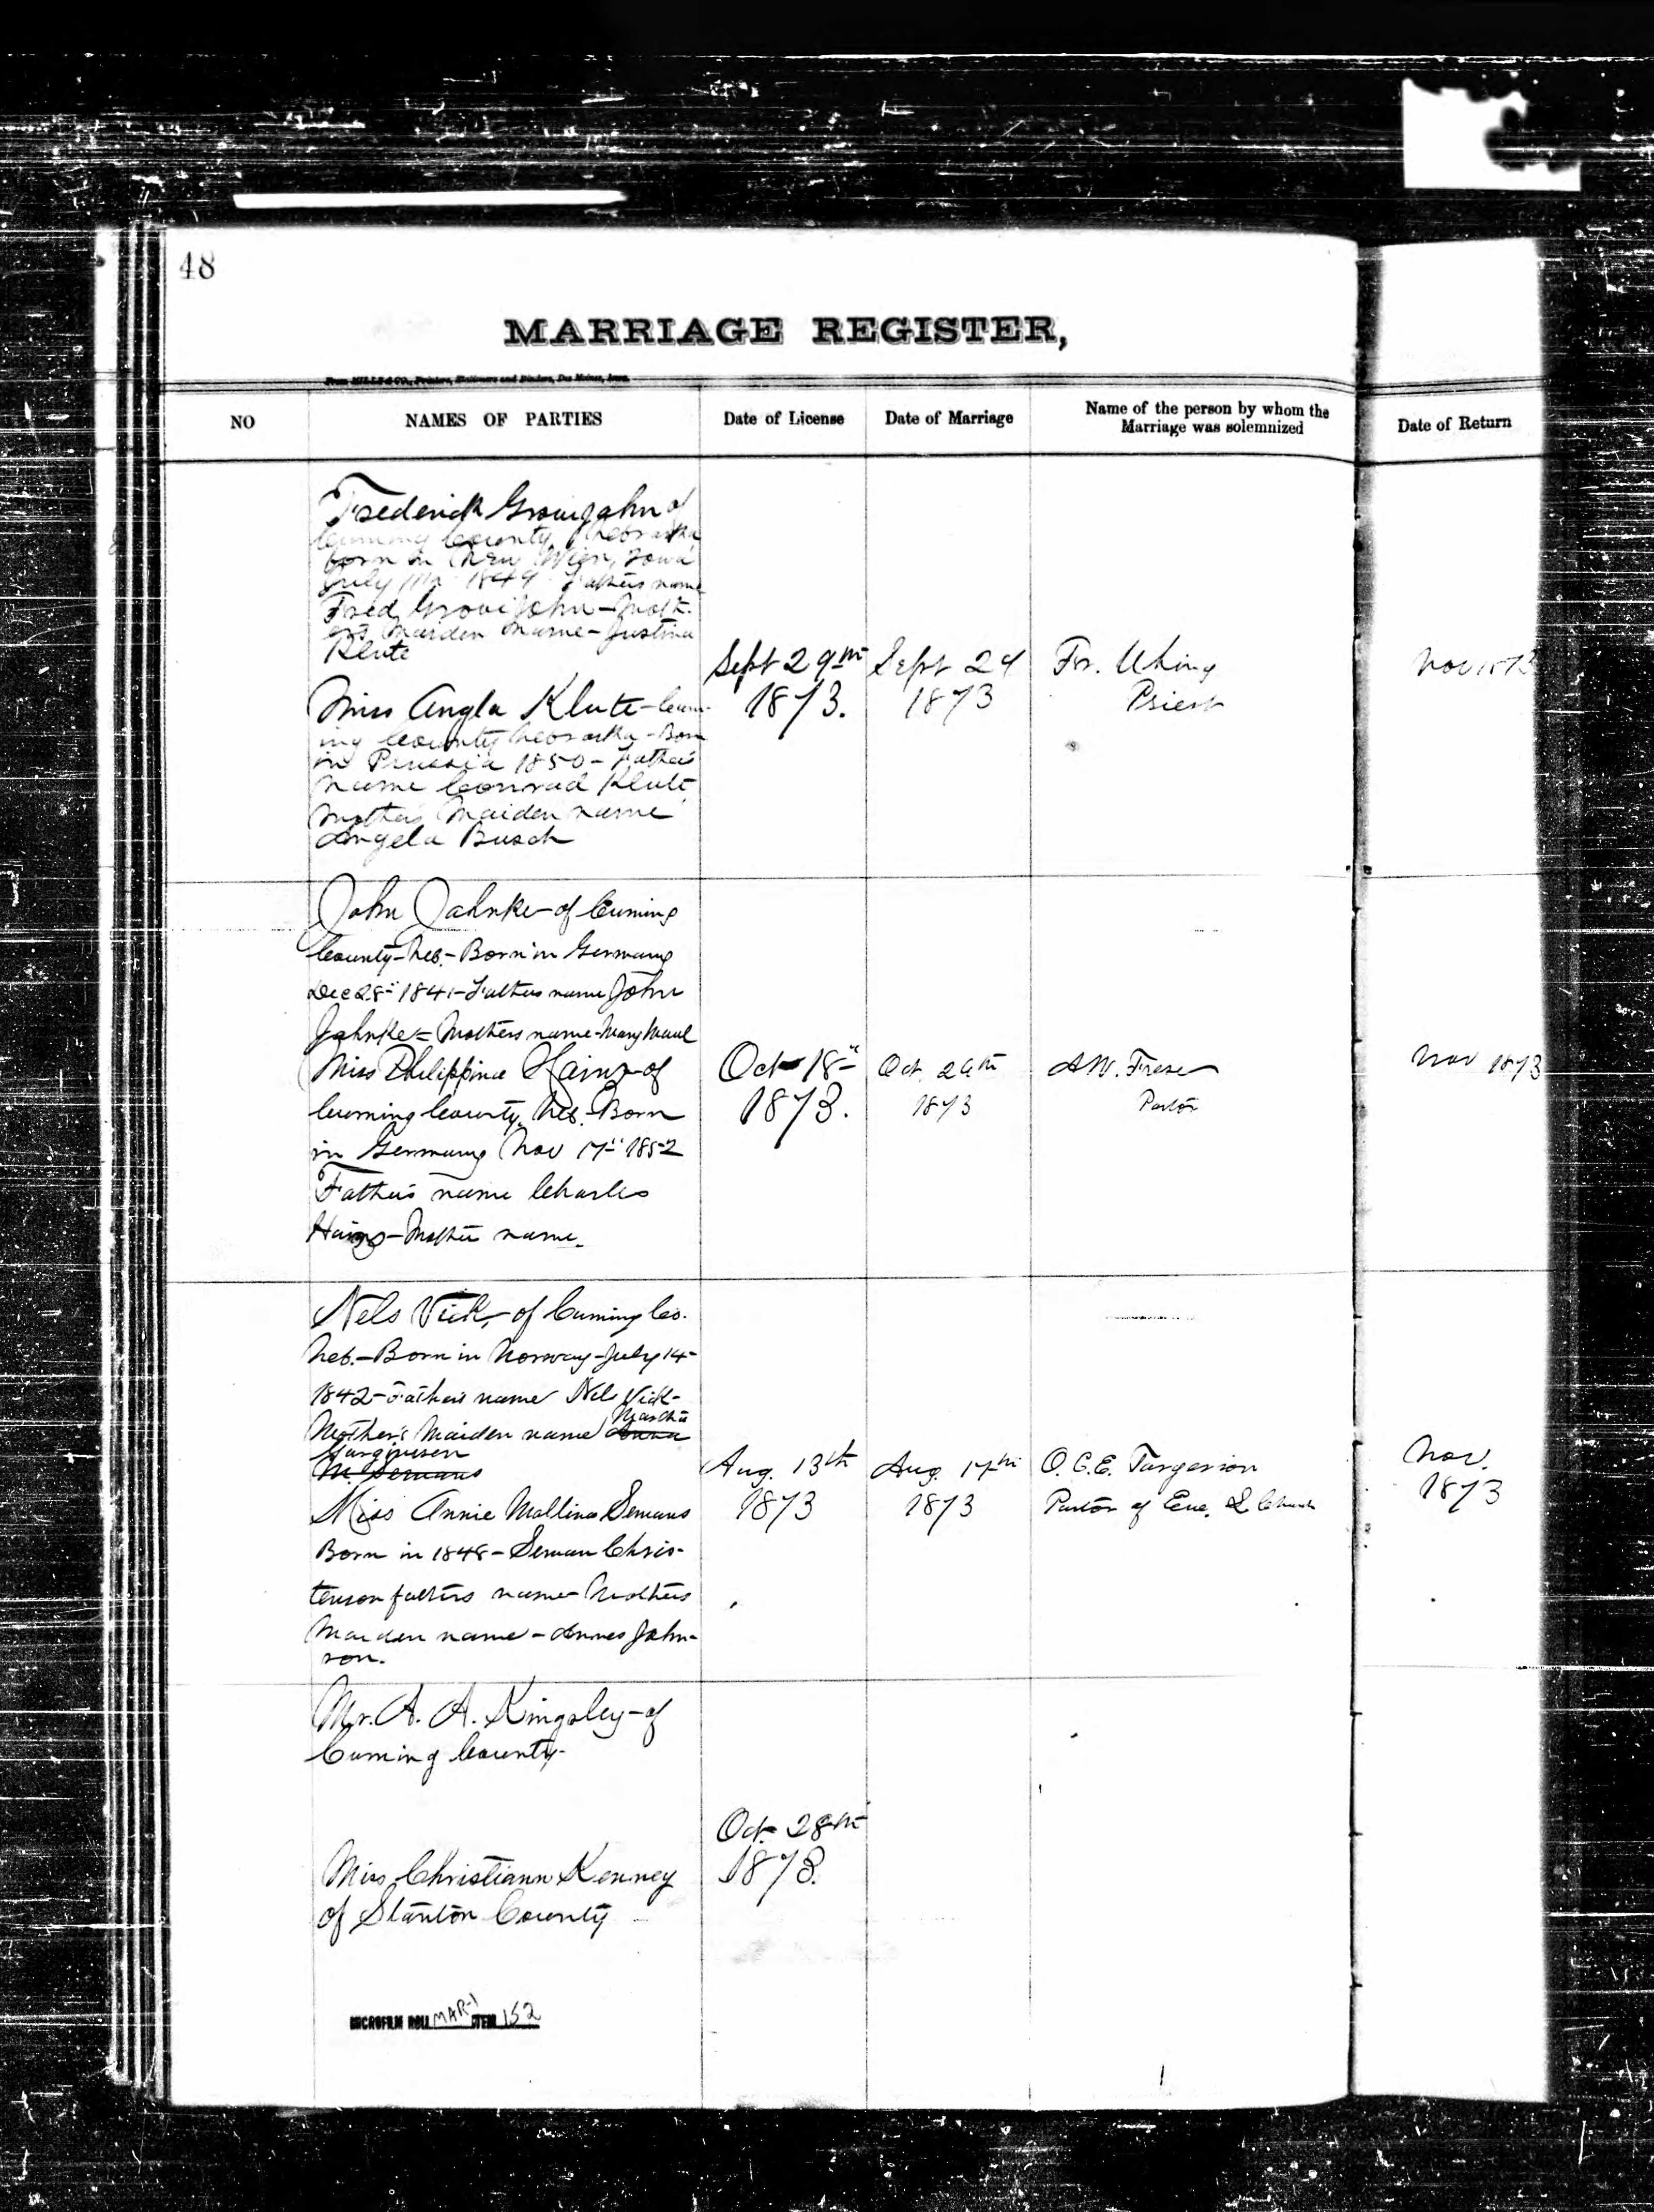 48
MARRIAGE REGISTER,
From MILLS & CO., Printers, Stationers and Binders, Des Moines, Iowa.
NO
NAMES OF PARTIES
Date of License
Date of Marriage
Name of the person by whom the
Marriage was solemnized
Date of Return
Frederick Grovijohn of
Cuming County, Nebraska
born in New Wien, Iowa
July 11th 1849 Fathers name
Fred Grovijohn - Moth-
ers Maiden Name - Justina
Klute
Miss Angla Klute - Cum-
ing County Nebraska - Born
in Prussia 1850 - Father's
Name Conrad Klute
Mothers Maiden name
Angela Busch
Sept 29th
1873.
Sept 29
1873
Fr. Uhing
Priest
Nov 1873
John Jahnke - of Cuming
County - Neb. - Born in Germany
Dec 28" 1841 - Fathers name John
Jahnke = Mothers name - Mary Maul
Miss Philippina Hainz - of
Cuming County, Neb. - Born
in Germany Nov 17" 1852
Father's name Charles
Hainz - Mother name.
Oct 18"
1873.
Oct. 26th
1873
A W. Frese
Pastor
Nov 1873
Nels Vick, - of Cuming Co.
Neb. - Born in Norway - July 14 -
1842 - Father's name Nel Vick -
Martha
Mother's Maiden name Anna
Gurginsen
M. Semans
Miss Annie Mallina Semans
Born in 1848 - Seman Chris-
tenson fathers name - Mothers
Maiden name - Annes John-
son.
Aug. 13th
1873
Aug. 17th
1873
O. C. E. Turgerion
Pastor of Eve. L Church
Nov.
1873
Mr. A. A. Kingsley - of
Cuming County -
Miss Christiann Kenney
of Stanton County
Oct. 28th
1873.
MICROFILM ROLL MAR-1 ITEM 152